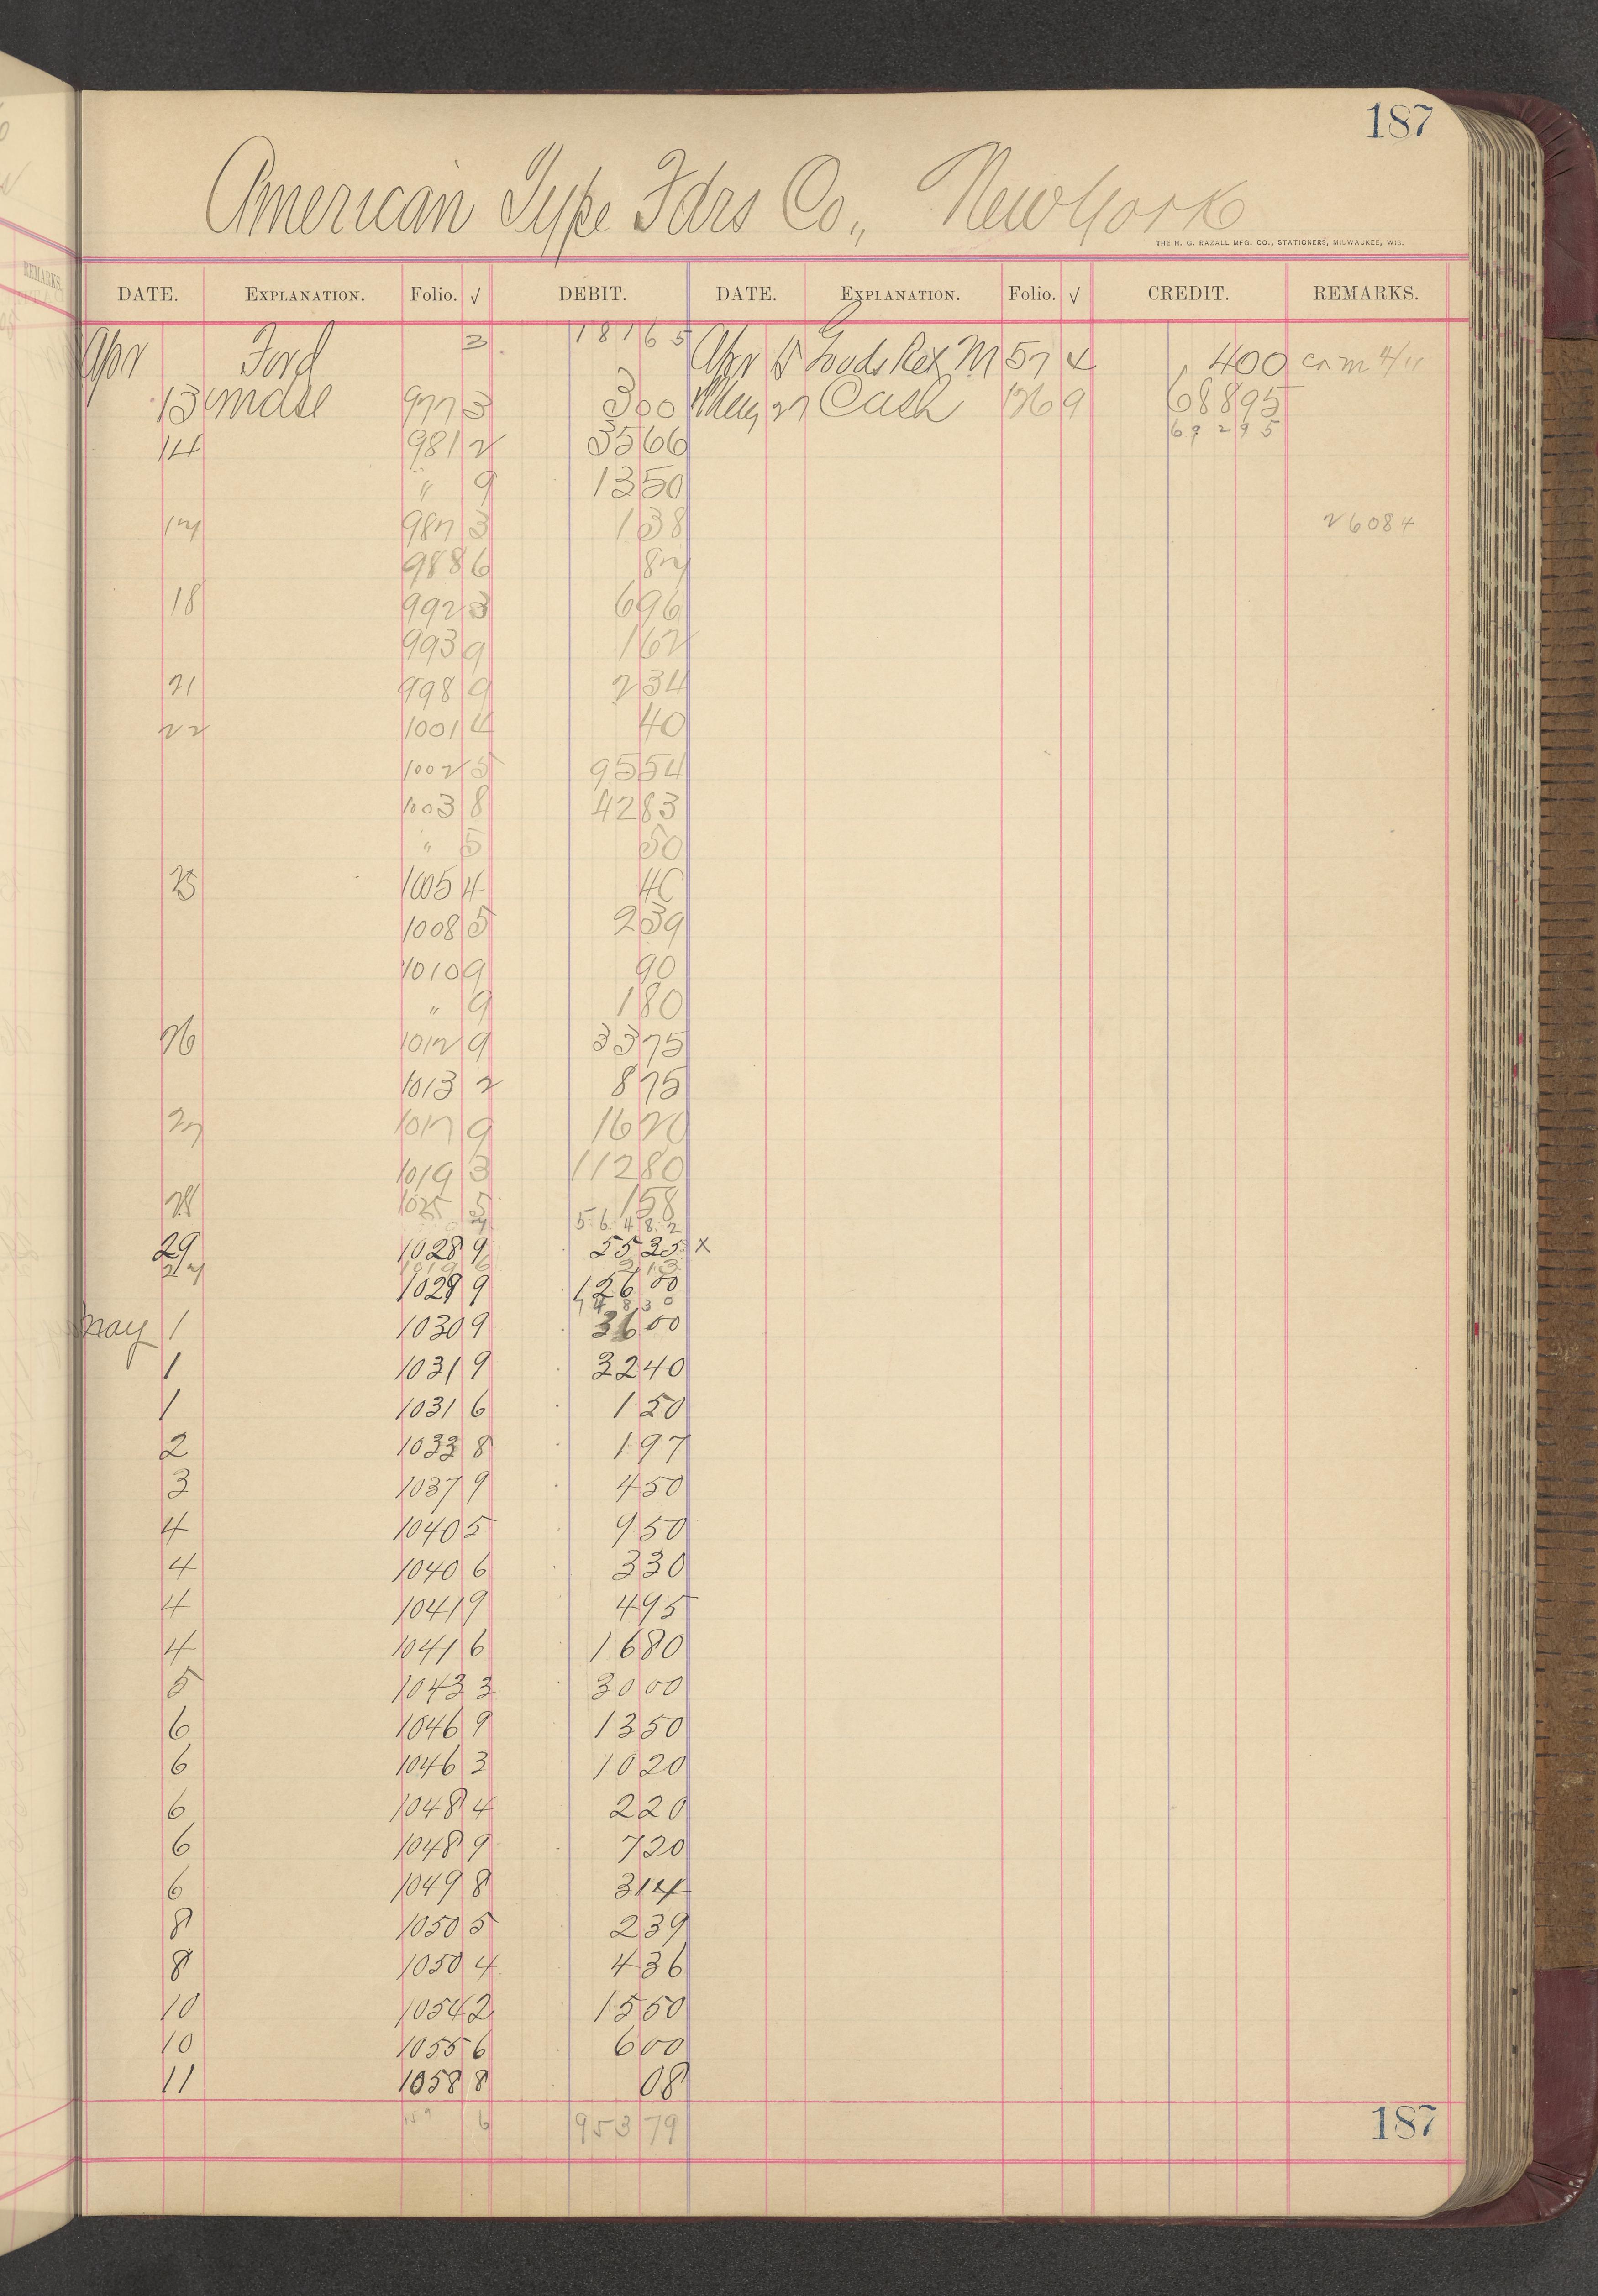 187
American Type Fdrs Co., New York
THE H. G. RAZALL MFG. CO., STATIONERS, MILWAUKEE, WIS.
DATE. EXPLANATION. Folio. √ DEBIT. DATE. EXPLANATION. Folio. √ CREDIT. REMARKS.
Apr Ford 3 181 65 Apr 15 Goods Ret M 57 4 4 00 cr m 4/11
13 mdse 977 3 3 00 May 27 Cash 176 9 688 95
692 95
14 981 2 35 66
" 9 13 50
17 987 3 1 38 260 84
988 6 87
18 992 3 6 96
993 9 1 62
21 998 9 2 34
22 1001 4 40
1002 5 95 54
1003 8 42 83
" 5 50
25 1005 4 40
1008 5 2 39
1010 9 90
" 9 1 80
26 1012 9 33 75
1013 2 8 75
27 1017 9 16 20
1019 3 112 80
28 1025 5 1 58
564 82
29 1028 9 55 25 x
27 1019 6 2 13
1029 9 126 00
748 30
May 1 1030 9 36 00
1 1031 9 32 40
1 1031 6 1 50
2 1033 8 1 97
3 1037 9 4 50
4 1040 5 9 50
4 1040 6 3 30
4 1041 9 4 95
4 1041 6 16 80
5 1043 3 30 00
6 1046 9 13 50
6 1046 3 10 20
6 1048 4 2 20
6 1048 9 7 20
6 1049 8 3 14
8 1050 5 2 39
8 1050 4 4 36
10 1054 2 15 50
10 1055 6 6 00
11 1058 8 08
6 953 79
187